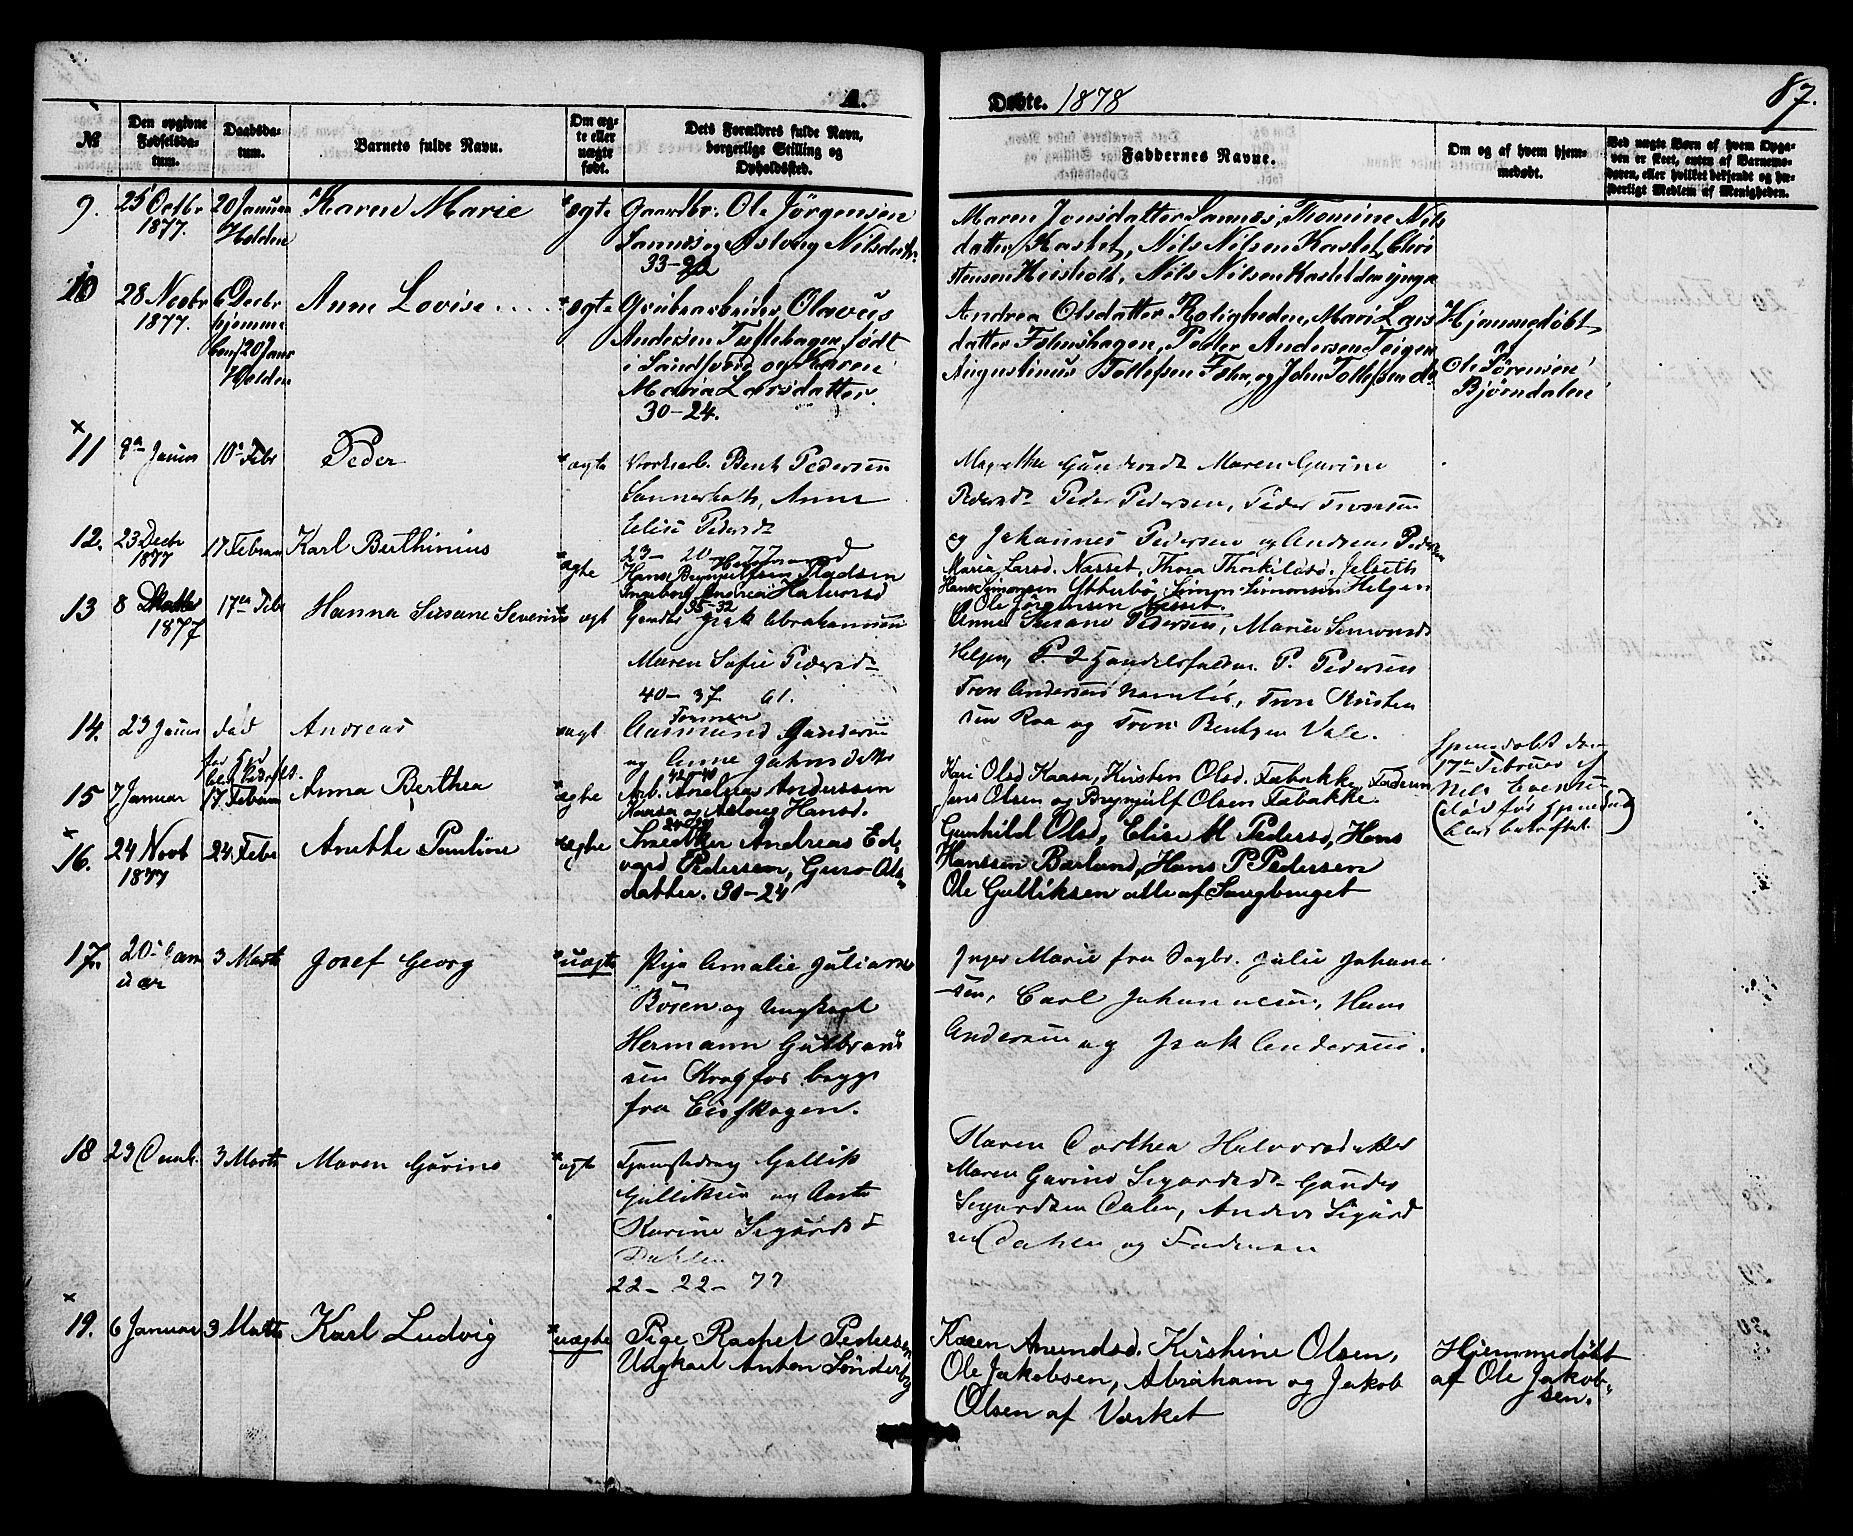 A.
Døbte. 1878
87.
№
Den opgivne Fødselsda-tum.
Daabsda-tum.
Barnets fulde Navn.
Om æg-te eller uægte født.
Dets Forældres fulde Navn, borgerlige Stilling og Opholdssted.
Faddernes Navne.
Om og af hvem hjem-medøbt.
Ved uægte Børn af hvem Opga-ven er skeet, enten af Barnemo-deren, eller hvilket bekjendt og hæ-derligt Medlem af Menigheden.
9.
25 Octbr 1877.
20 Januar Holden
Karen Marie
ægte
Gaardbr. Ole Jörgensen
Sannæs og Aslaug Nilsdatter
33-32
Maren Jonsdatter Sannæs, Thomine Nils
datter Kastet, Nils Nilsen Kastet, Chri
stensen Heisholt, Nils Nilsen Kastet den yngre
10
28 Novbr 1877.
6 Decbr hjemme 20 Janr Holden
Anne Lovise
ægte
Grubearbeider Olavus
Andersen Tuftehagen, født
i Sandsværd og Karen
Maria Larsdatter
30-24.
Andrea Olsdatter Roligheden, Mari Lars
datter Folmshagen, Peder Andersen Teigen
Augustinus Tollefsen Folm, og John Tollefsen do
Hjemmedøbt
af
Ole Sörensen
Bjørndalen
11
9de Januar
10de Febr
Peder
ægte
Bent Pedersen
Sannerholt, Anne
Elise Pedersdr
23 - 20 - 77
Gundersdr Maren Gurine
Pedersdr Peder Pedersen, Peder Tronsen
og Johannes Pedersen og Andreas Pedersen
12.
23 Decbr 1877
17 Februar
Karl Berthinius
ægte
Husmand
Hans Brynjulfsen Pladsen
Ingeborg Andrea Halvorsd
35-32
Maria Larsd. Næsset, Thora Thorkildsd. Jelseth
Hans Simonsen Ytterbø, Simon Simonsen Helgen
Ole Jörgensen Næsset.
13
8 1877
17de Febr
Hanna Susane Severine
ægt
Isak Abrahamsen
Maren Sofie Pedersdr
40 - 37 61.
Anne Susane Pedersen, Marie Simonsdr
Helgen, Handelsfuldm. P. Pedersen
Tron Andersen Namløs, Tron Kristen
sen Raa og Tron Bentsen Vale.
14.
23 Januar
død
Andreas
ægt
Formand
Aasmund Gundersen
og Anne Jahnsdatter
42-40
17de Februar
(død før
blev bekræftet.)
15
7 Januar
17 Februar
Anna Berthea
ægte
Arb. Andreas Anderssen
Kaasa og Aslaug Hansd.
24-29
Kari Olsd Kaasa, Kirsten Olsd. Fæbakke, Faderen
Jens Olsen og Brynjulf Olsen Fæbakke.
16.
24 Novb 1877
24 Febr
Anette Pauline
ægte
Snedker Andreas Ed
vard Pedersen, Guro Ols
datter. 30-24
Gunhild Olsd, Elise M Pedersd, Hans
Hanssen Barland, Hans P Pedersen
Ole Gulliksen alle af Saugbruget
17.
20de Jan uar
3 Marts
Josef Georg
uægte
Pige Amalie Juliane
Bösen og Ungkarl
Hermann Gulbrand
sen Krogfos bygs
fra Eidskogen.
Inger Marie fra Sagbr. Julie Johan
sen, Carl Johannesen, Hans
Andersen og Isak Andersen.
18
23 Decmb.
3 Marts
Maren Gurine
ægt
Tjenestedreng Gullik
Gulliksen og Aaste
Karine Sigurdsdr
Dahlen
22 - 22 - 77
Karen Dorthea Halvorsdatter
Maren Gurine Sigurdsdr Gunder
Sigurdsen Dalen, Anders Sigurd
sen Dahlen og Faderen
19.
6 Januar
3 Marts
Karl Ludvig
uægte
Pige Rachel Pedersen
Ungkarl Anton Sönderby
Karen Amundsd. Kirstine Olsen,
Ole Jakobsen, Abraham og Jakob
Olsen af Værket
Hjemmedöbt
af Ole Jakob-
sen.